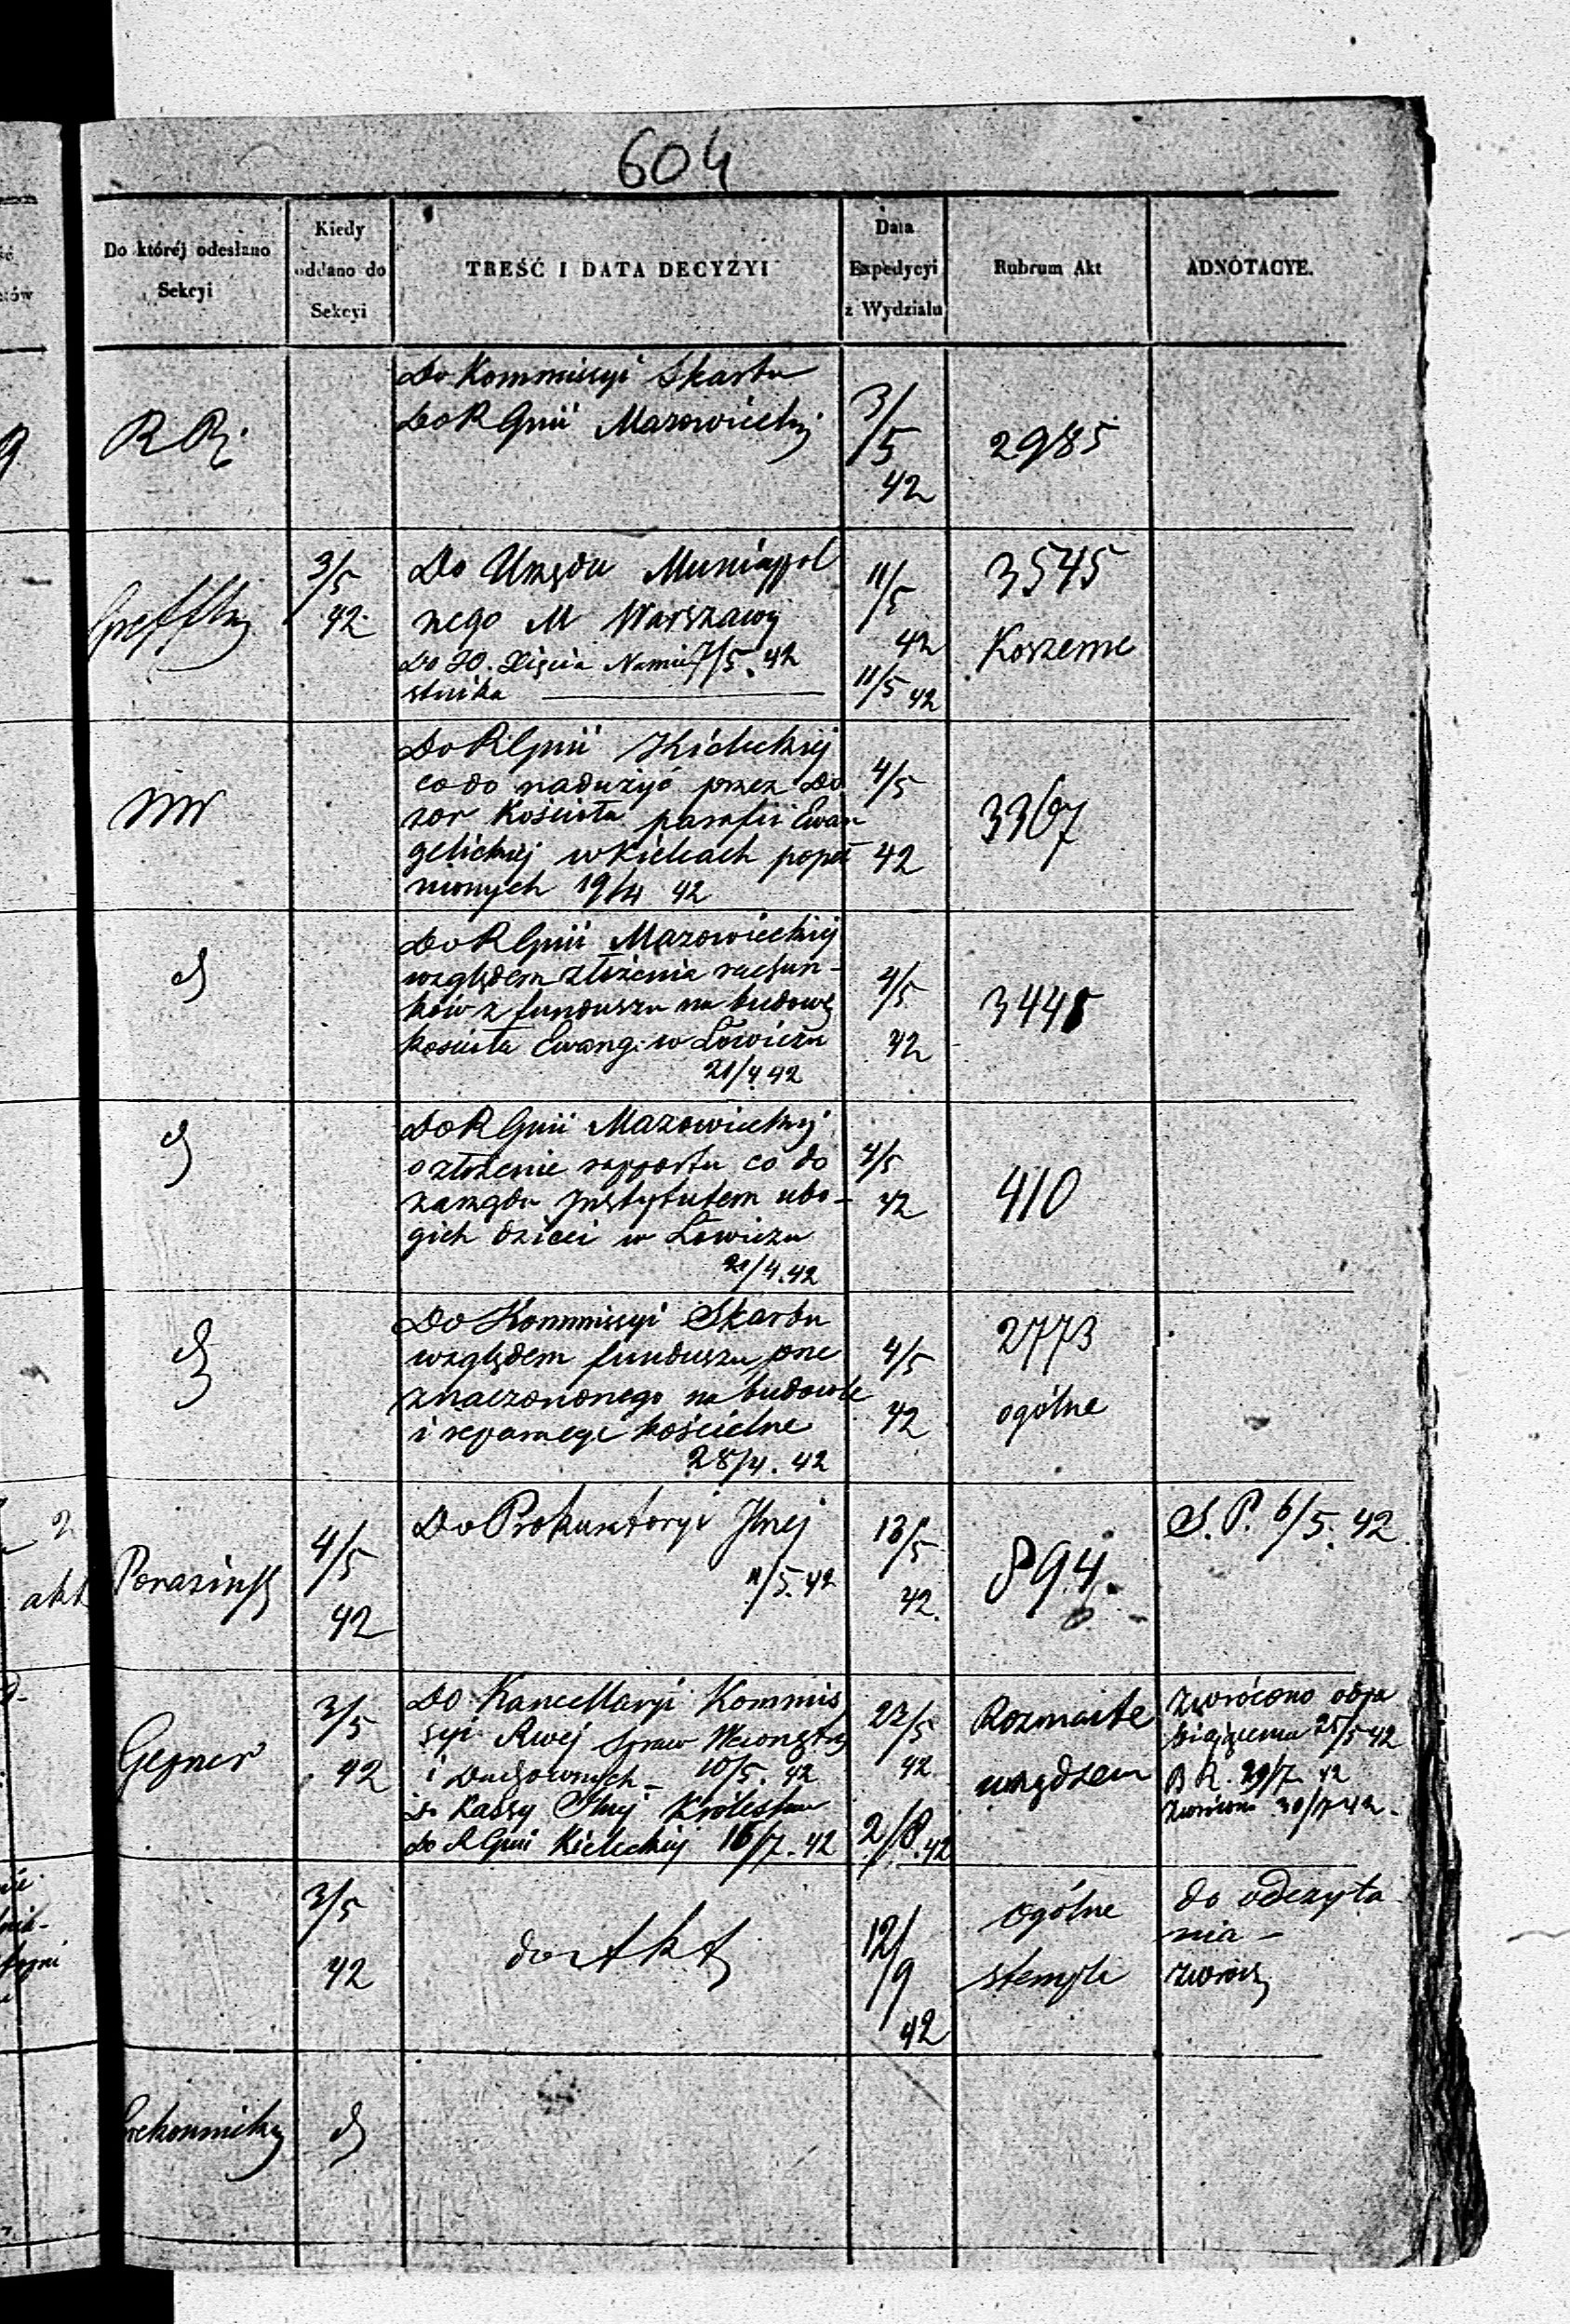 604
Do któréj odesłano
Sekcyi
Kiedy
oddano do
Sekcyi
TREŚĆ I DATA DECYZYI
Data
Expedycyi
z Wydziału
Rubrum Akt
ADNOTACYE.
Do Kommissyi Skarbu
Do R Gnii Mazowieckiej
3/5
42
2985
3/5
42
Do Urzędu Municypal
nego M Warszawy
Do JO. Xięcia Namie 7/5. 42
stnika
11/5
42
11/5 42
3545
Koszerne
Do R Gnii Kieleckiej
co do nadużyć przez Do
zor Kościoła parafii Ewan
gelickiej w Kielcach popeł
nionych 19/4 42
4/5
42
3367
Do R Gnii Mazowieckiej
względem złożenia rachun-
ków z funduszu na budowę
kościoła Ewang. w Łowiczu
21/4 42
4/5
42
3445
Do R Gnii Mazowieckiej
o złożenie rapportu co do
zarządu Instytutem ubo-
gich dzieci w Łowiczu
21/4. 42
4/5
42
410
Do Kommissyi Skarbu
względem funduszu prze
znaczononego na budowle
i reparacye kościelne
28/4. 42
4/5
42
2773
ogólne
4/5
42
Do Prokuratoryi Jlnej
11/5. 42
13/5
42.
894.
S. P. 6/5. 42
Gejner
3/5
42
Do Kancellaryi Kommis
syi Rwej Spraw Wewnętrz
i Duchownych - 10/5. 42
Do Kassy Głnej Królestwa
do R Gnii Kieleckiej 16/7. 42
27/5
42
2/8. 42
Rozmaite
urzędzem
Zwrócono 25/5 42
B R. 29/7 42
Zwrócono 30/7 42.
3/5
42
do Akt
12/9
42
ogólne
stemple
do odczyta
nia -